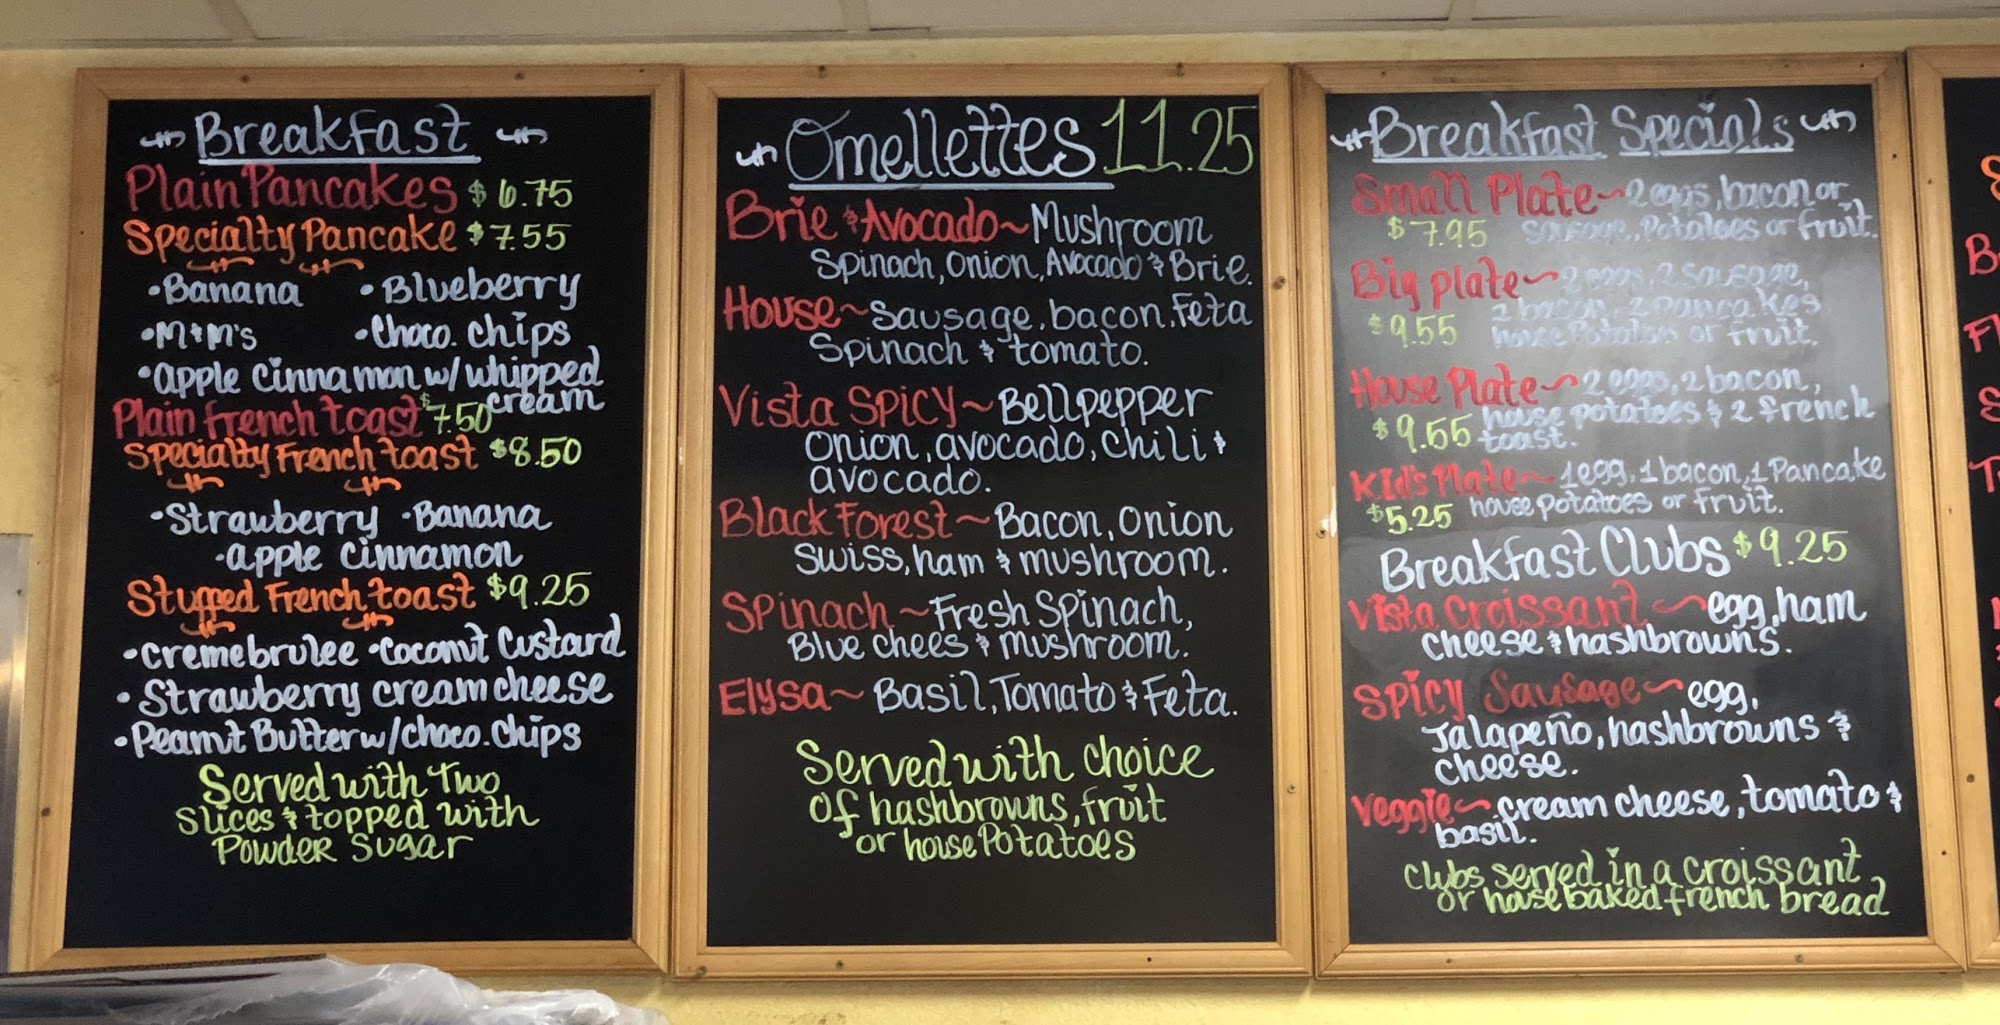 Breakfast
Plain Pancakes $6.75
Specialty Pancake $7.55
•Banana •Blueberry
•M&M's •Choco. chips
•apple cinnamon w/whipped
cream
Plain french toast $7.50
Specialty French toast $8.50
•Strawberry •Banana
•apple cinnamon
Stuffed French toast $9.25
•cremebrulee •Coconut Custard
•Strawberry cream cheese
•Peanut Butter w/choco.chips
Served with Two
slices & topped with
Powder Sugar
Omellettes 11.25
Brie & Avocado~Mushroom
Spinach, onion, Avocado & Brie.
House~Sausage, bacon, Feta
Spinach & tomato.
Vista Spicy~Bellpepper
onion, avocado, chili &
avocado.
Black Forest~Bacon, onion
swiss, ham & mushroom.
Spinach~Fresh Spinach,
Blue chees & mushroom.
Elysa~Basil, Tomato & Feta.
Served with choice
of hashbrowns, fruit
or house Potatoes
Breakfast Specials
Small Plate~2 eggs, bacon or
$7.95 sausage, Potatoes or fruit.
Big plate~2 eggs, 2 sausage,
2 bacon, 2 pancakes
$9.55 house Potatoes or fruit.
House Plate~2 eggs, 2 bacon,
$9.55 house potatoes & 2 french
toast.
Kid's Plate~1 egg, 1 bacon, 1 Pancake
$5.25 house potatoes or fruit.
Breakfast Clubs $9.25
Vista Croissant~egg, ham
cheese & hashbrowns.
Spicy Sausage~egg,
Jalapeño, hashbrowns &
cheese.
Veggie~cream cheese, tomato &
basil.
Clubs served in a croissant
or house baked french bread